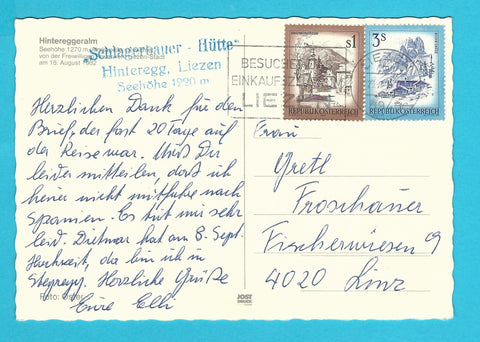 Hintereggeralm
Seehöhe 1270 m
von der Freiwilligen
am 15. August 1982
Schlagerbauer - Hütte
Hinteregg, Liezen
Seehöhe 1290 m
Herzlichen Dank für den
Brief, der fast 20 Tage auf
der Reise war. Muß Dir
leider mitteilen, daß ich
heuer nicht mitfahre nach
Spanien. Es tut mir sehr
leid. Dietmar hat am 8. Sept.
Hochzeit, da bin ich in
Steyregg. Herzliche Grüße
Eure Elli
Foto:
JOST
DRUCK
BESUCHEN
EINKAUFSZ
LIEZ
S1
REPUBLIK ÖSTERREICH
3S
REPUBLIK ÖSTERREICH
Frau
Gretl
Froschauer
Fischerwiesen 9
4020 Linz